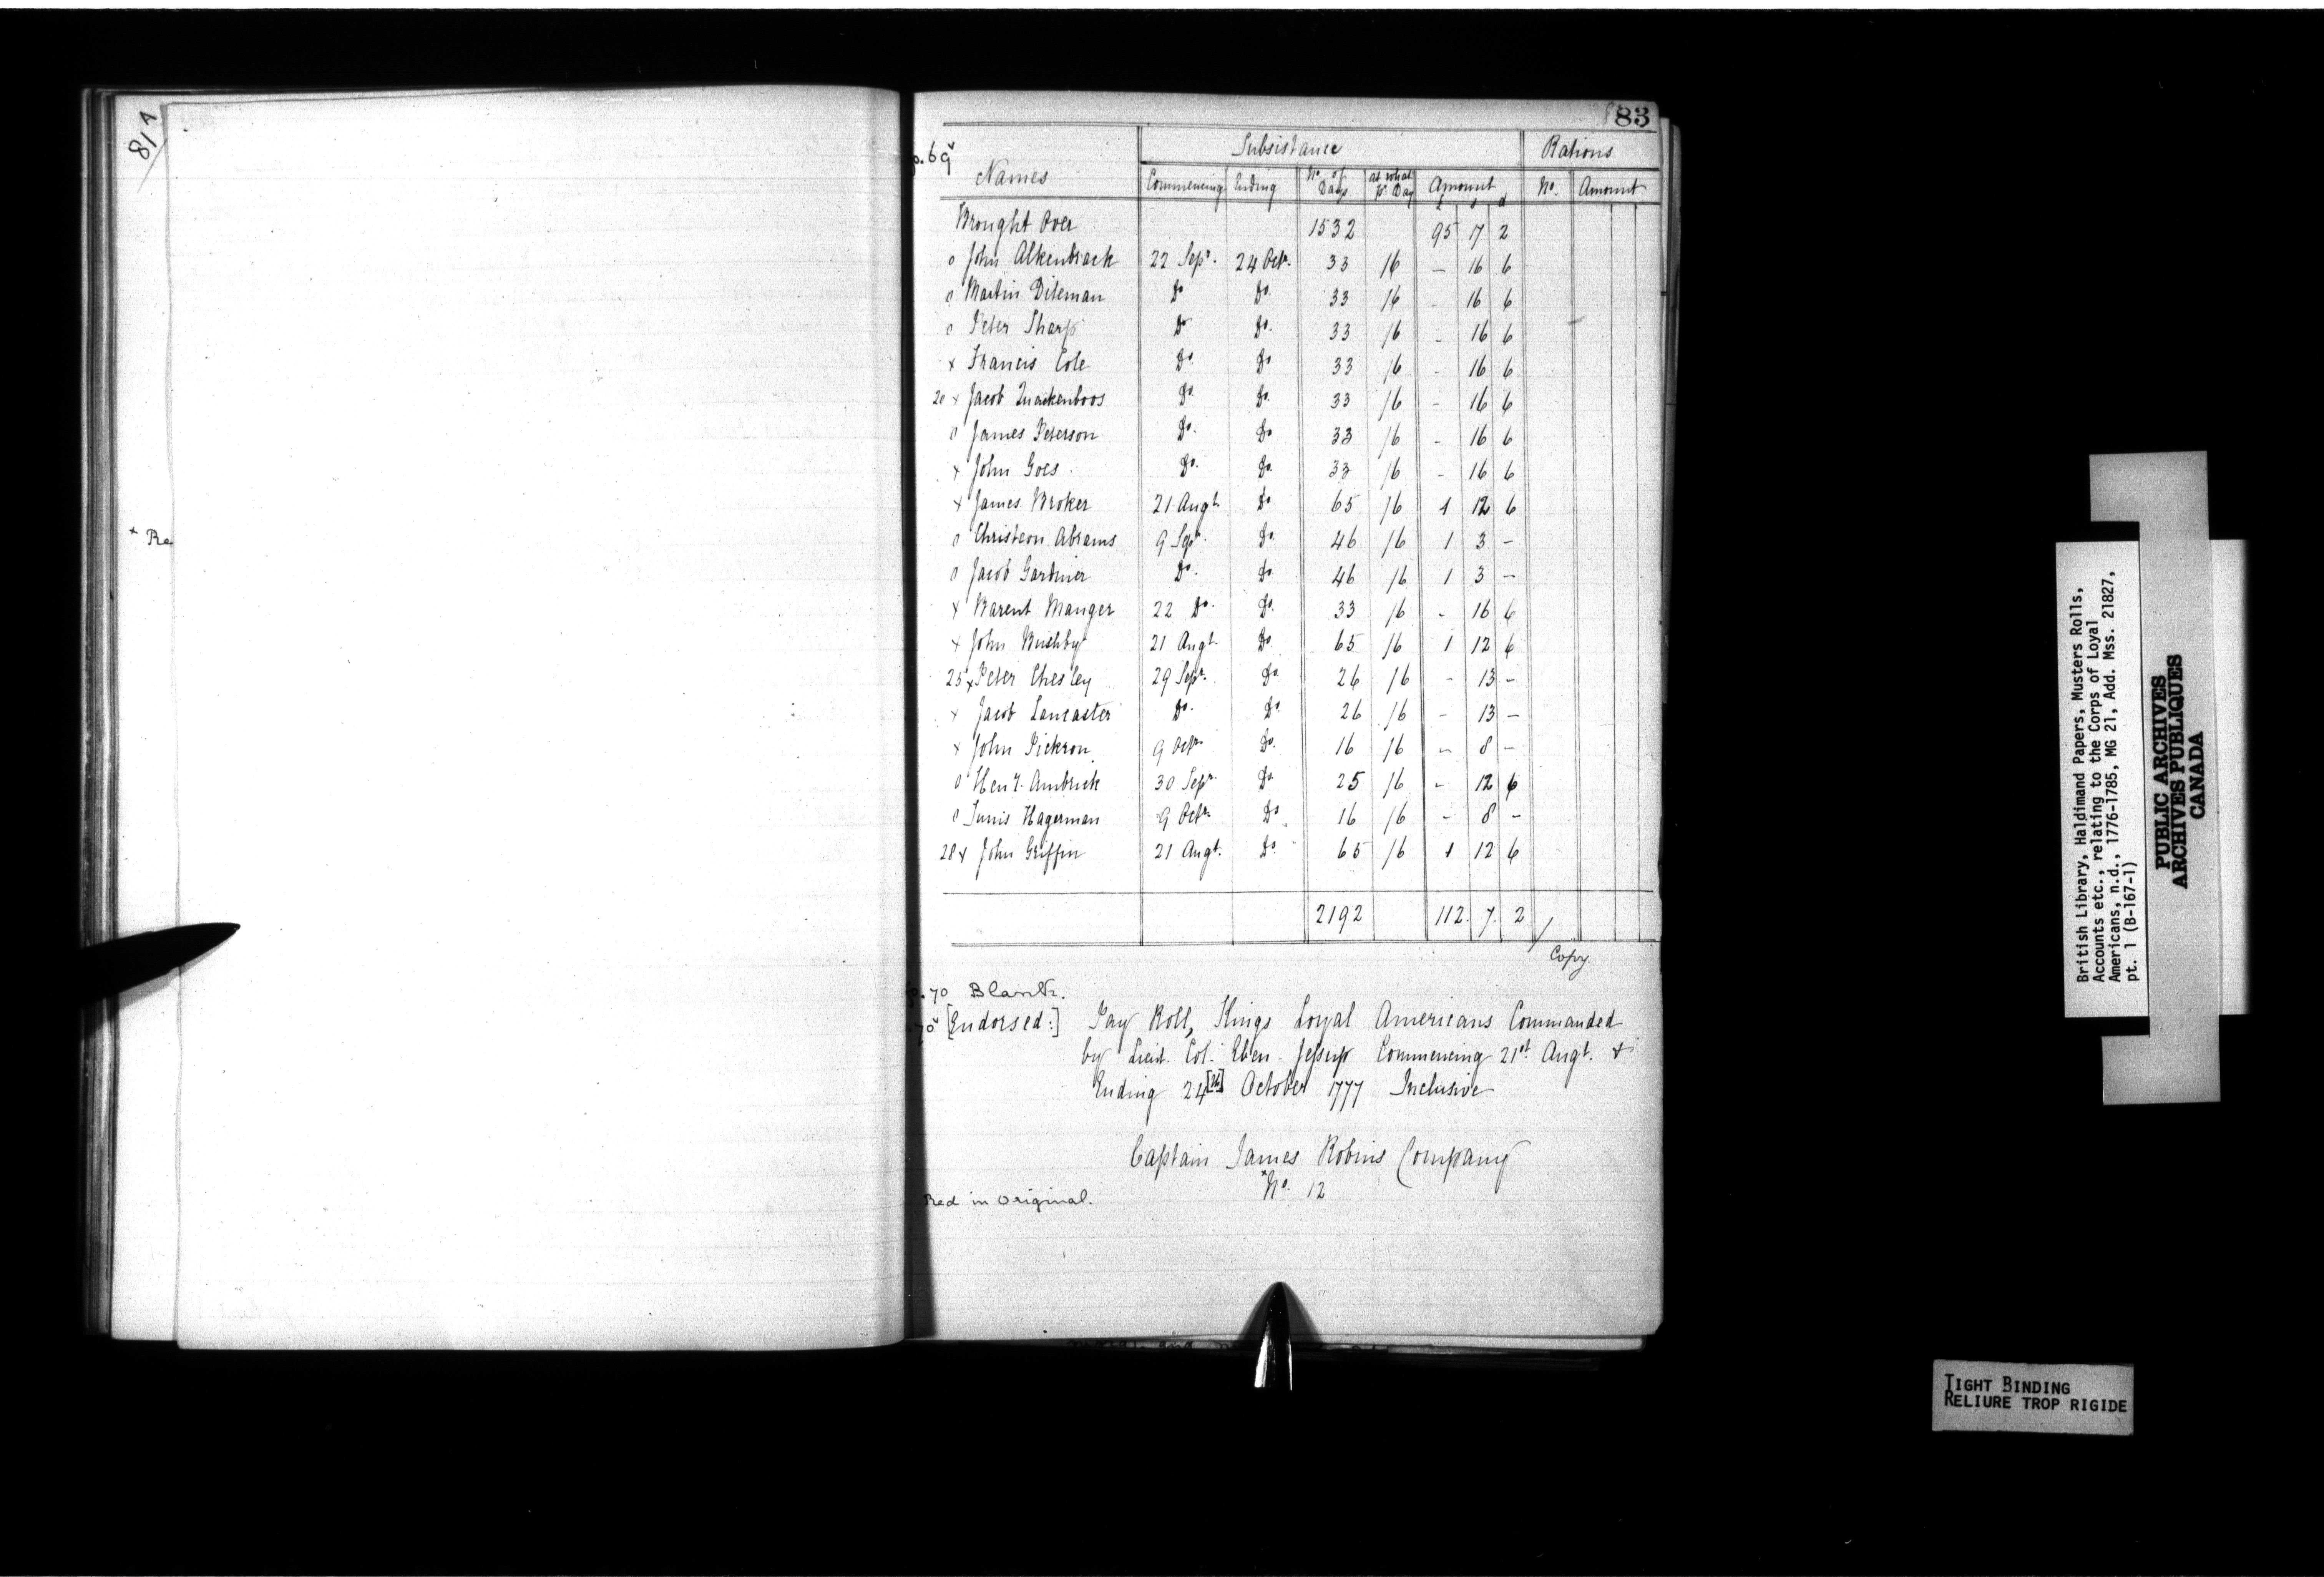 814
+ Re
83
p. 69v
Names Subsistance Rations
Commencing Ending No. of Days at what pr. Day Amount No. Amount
£ s d
Brought Over 1532 95 17 2
o John Alkenbrack 22 Sepr. 24 Octr. 33 /6 – 16 6
o Martin Diteman Do Do. 33 /6 – 16 6
o Peter Sharp Do Do. 33 /6 – 16 6
x Francis Cole Do. Do 33 /6 – 16 6
20 x Jacob Quackenboos Do. Do. 33 /6 – 16 6
o James Peterson Do. Do 33 /6 – 16 6
x John Goes Do. Do. 33 /6 – 16 6
x James Broker 21 Augt. Do 65 /6 1 12 6
o Christeon Abrams 9 Sepr. Do. 46 /6 1 3 –
o Jacob Gardner Do. Do. 46 /6 1 3 –
x Barent Manger 22 Do. Do. 33 /6 – 16 6
x John Bushby 21 Augt. Do 65 /6 1 12 6
25 x Peter Chesley 29 Sepr. Do 26 /6 – 13 –
x Jacob Lancaster Do. Do. 26 /6 – 13 –
x John Pickron 9 Octr. Do. 16 /6 – 8 –
o Heny. Ambrick 30 Sepr. Do. 25 /6 – 12 6
o Tunis Hagerman 9 Octr. Do 16 /6 – 8 –
28 x John Griffin 21 Augt. Do. 65 /6 1 12 6
2192 112. 7. 2
Copy.
p. 70 Blank.
70v [Endorsed:] Pay Roll, Kings Loyal Americans Commanded
by Lieut. Col. Eben. Jessup Commencing 21st. Augt. &
Ending 24[th] October 1777 Inclusive
Captain James Robins Company
x No. 12
Red in Original.
British Library, Haldimand Papers, Musters Rolls,
Accounts etc., relating to the Corps of Loyal
Americans, n.d., 1776-1785, MG 21, Add. Mss. 21827,
pt. 1 (B-167-1)
PUBLIC ARCHIVES
ARCHIVES PUBLIQUES
CANADA
TIGHT BINDING
RELIURE TROP RIGIDE